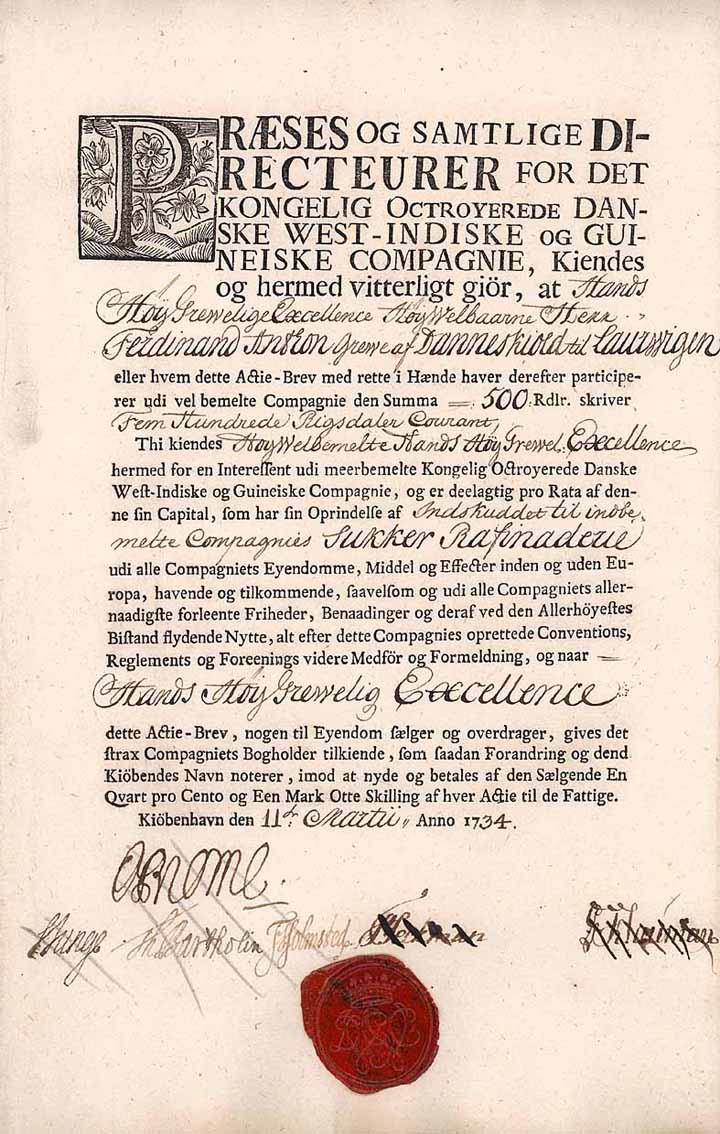 PRÆSES OG SAMTLIGE DI-
RECTEURER FOR DET
KONGELIG OCTROYEREDE DAN-
SKE WEST-INDISKE OG GUI-
NEISKE COMPAGNIE, Kiendes
og hermed vitterligt giör, at Hands
Höy Grewelige Excellence Höy Welbaarne Herr
Ferdinand Anthon Grewe af Danneskiold til Laurwigen
eller hvem dette Actie-Brev med rette i Hænde haver derefter participe-
rer udi vel bemelte Compagnie den Summa 500 Rdlr. skriver
Fem Hundrede Rigsdaler Courant,
Thi kiendes Höy Welbemelte Hands Höy Grewel. Excellence
hermed for en Interessent udi meerbemelte Kongelig Octroyerede Danske
West-Indiske og Guineiske Compagnie, og er deelagtig pro Rata af den-
ne sin Capital, som har sin Oprindelse af Indskuddet til indbe-
melte Compagnies Sukker Rafinaderie
udi alle Compagniets Eyendomme, Middel og Effecter inden og uden Eu-
ropa, havende og tilkommende, saavelsom og udi alle Compagniets aller-
naadigste forleente Friheder, Benaadinger og deraf ved den Allerhöyestes
Bistand flydende Nytte, alt efter dette Compagnies oprettede Conventions,
Reglements og Foreenings videre Medför og Formeldning, og naar
Hands Höy Grewelig Excellence
dette Actie-Brev, nogen til Eyendom sælger og overdrager, gives det
strax Compagniets Bogholder tilkiende, som saadan Forandring og dend
Kiöbendes Navn noterer, imod at nyde og betales af den Sælgende En
Qvart pro Cento og Een Mark Otte Skilling af hver Actie til de Fattige.
Kiöbenhavn den 11te Martii Anno 1734.
Bartholin Holmsted